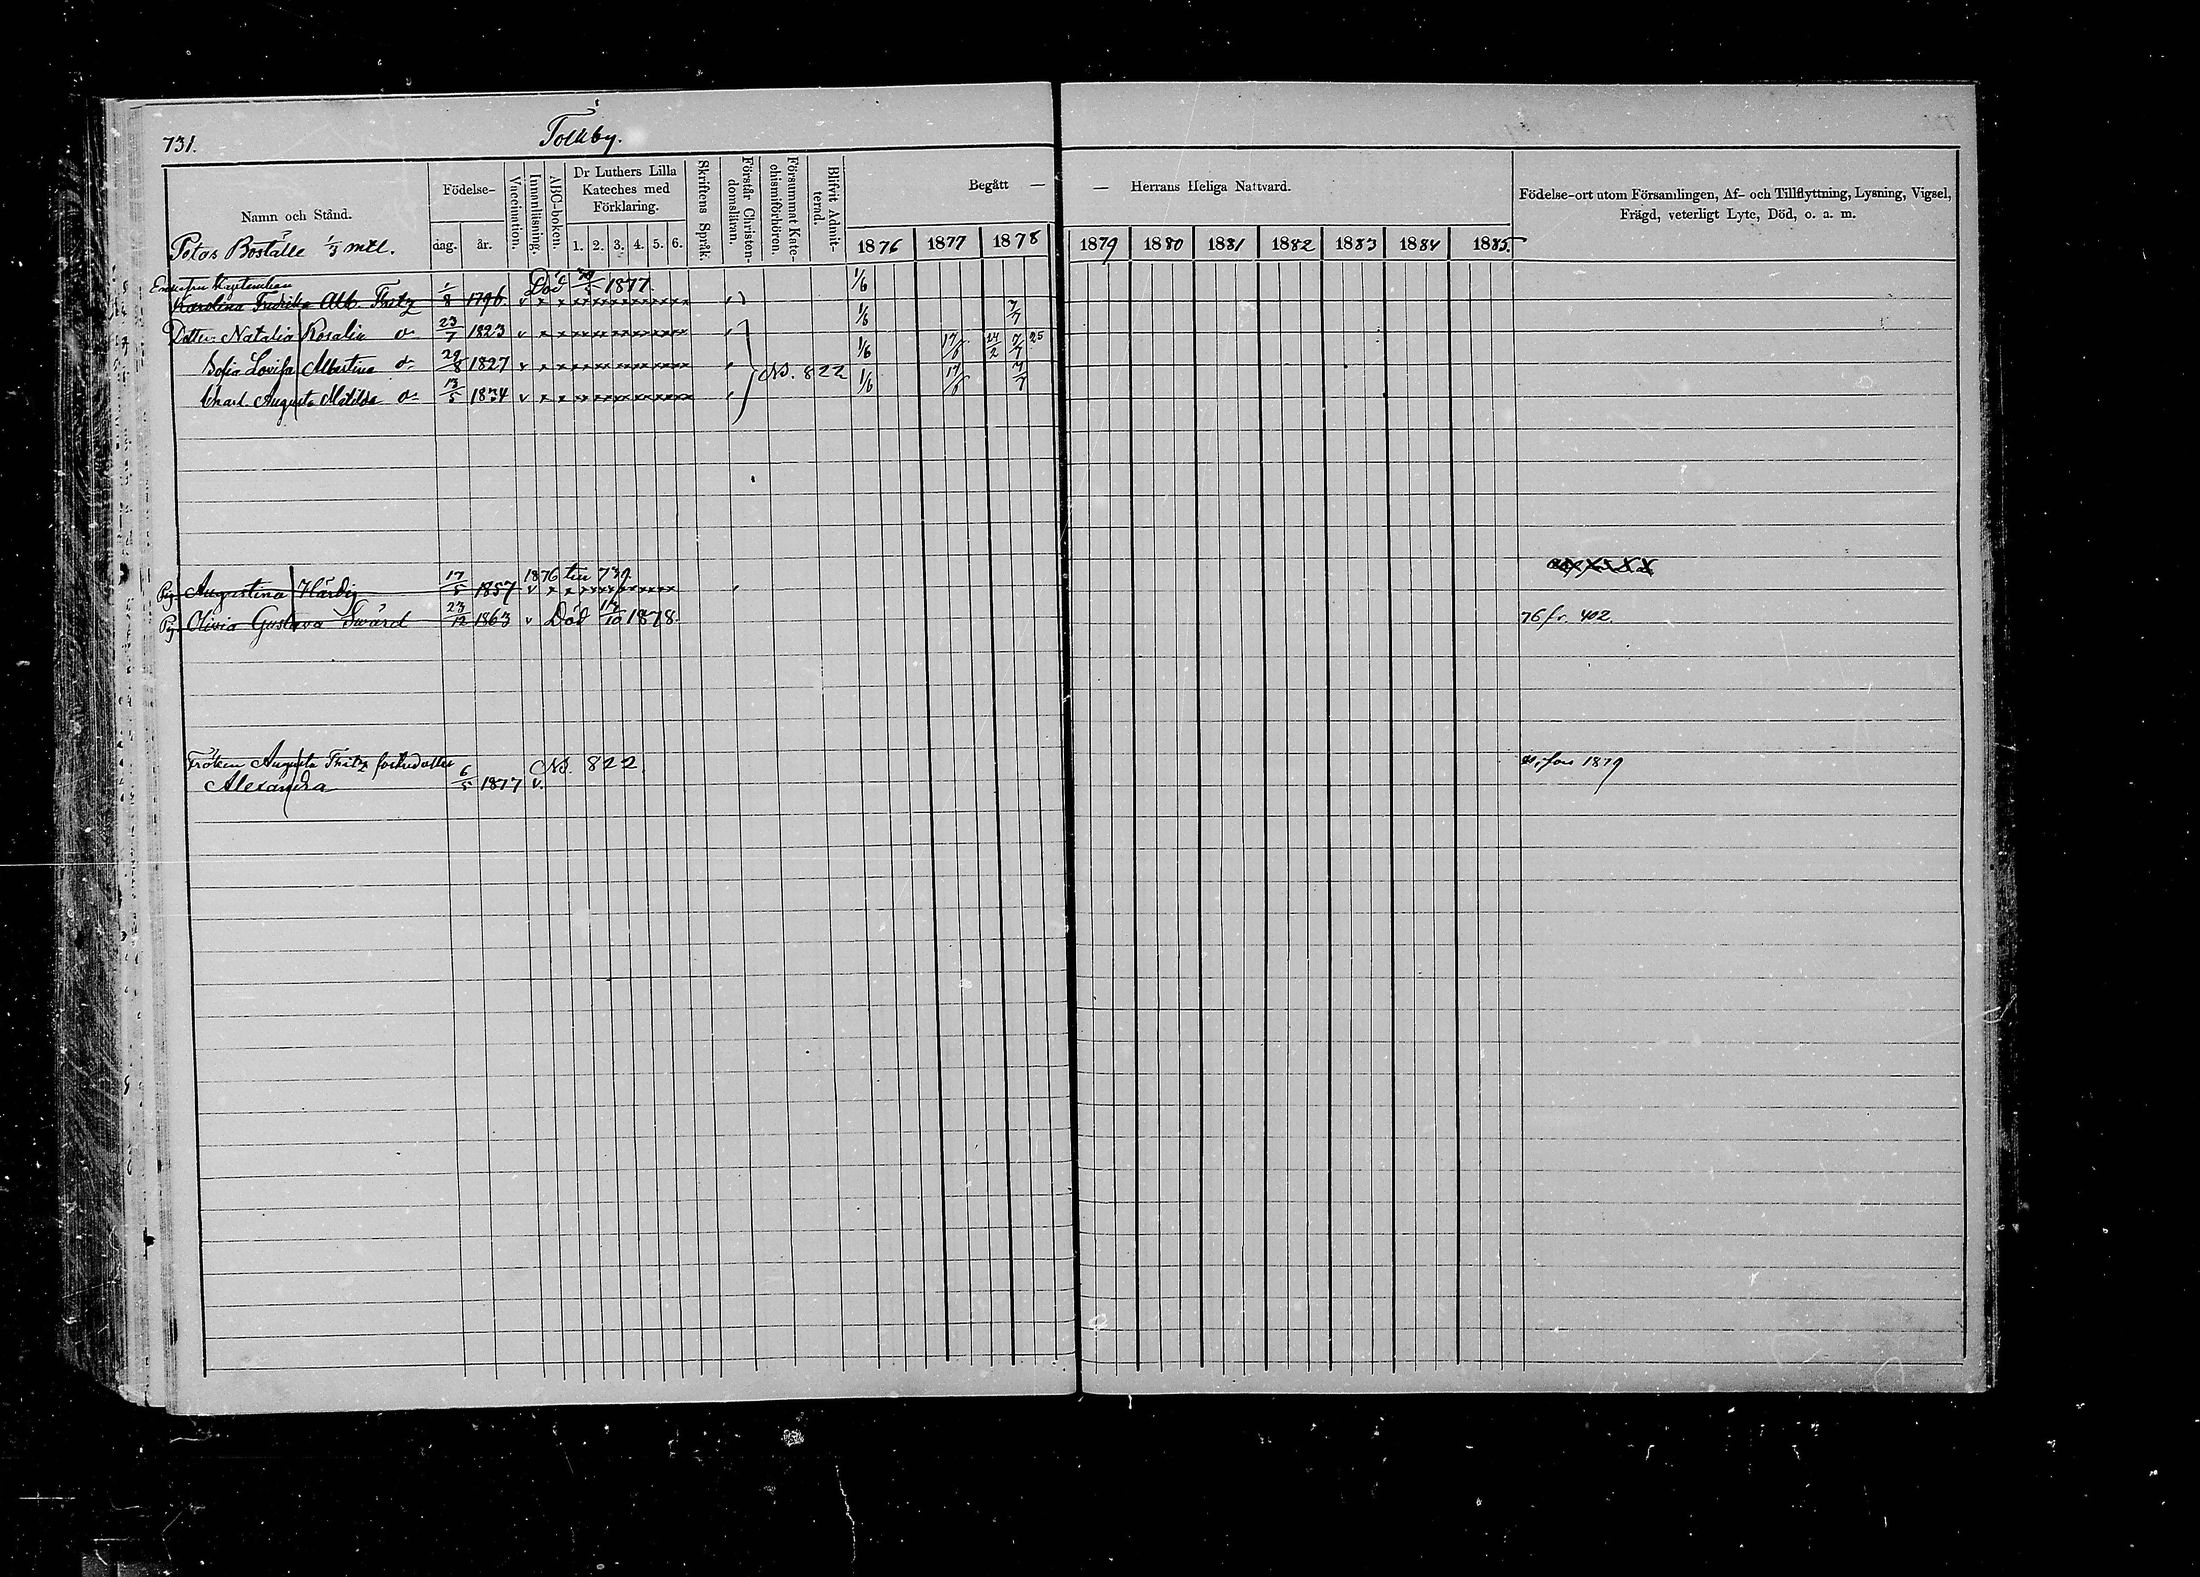 731.
Tolkby.
Namn och Stånd.
Födelse-
dag.
år.
Vaccination.
Innanläsning.
ABC-boken.
Dr Luthers Lilla
Kateches med
Förklaring.
1. 2. 3. 4. 5. 6.
Skriftens Språk.
Förstår Christen-
domsläran.
Försummat Kate-
chismiförhören.
Blifvit Admit-
terad.
Begått —
— Herrans Heliga Nattvard.
1876 1877 1878
1879 1880 1881 1882 1883 1884 1885.
Födelse-ort utom Församlingen, Af- och Tillflyttning, Lysning, Vigsel,
Frägd, veterligt Lyte, Död, o. a. m.
Potas Boställe 1/3 mtl.
Enkefru Kaptenskan Död 1877 1/6
Karolina Fredrika Alb. Thitz 1/8 1796 v x x x x x x x x x x
Dotter Natalia Rosalia d:o 23/7 1823 v x x x x x x x x x x 1/6 7/7
Sofia Lovisa Albertina d:o 29/8 1827 v x x x x x x x x x x 1/6 17/6 24/2 7/7 25
Charl. Augusta Matilda d:o 13/5 1834 v x x x x x x x x x x NB. 822 1/6 17/6 7/7
1876 till 739
Pig. Augustina Härdig 17/5 1857 v x x x x x x x x x
Pig. Olivia Gustava Svärd 23/12 1863 v Död 13/10 1878. 76 fr. 402.
Fröken Augusta Thitz fosterdotter NB. 822.
Alexandra 6/5 1877 v.
H:fors 1879